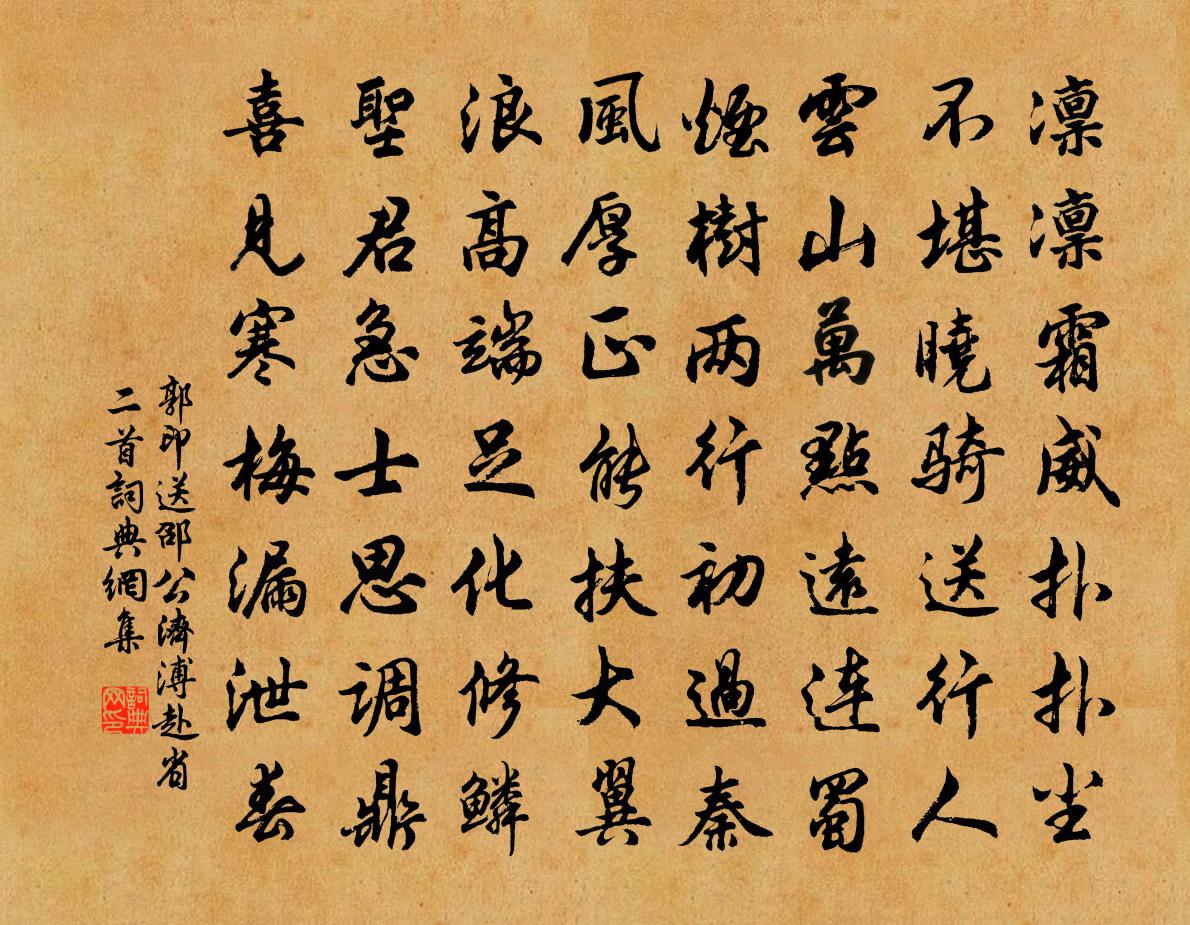 凛凛霜威扑扑尘
不堪曉骑送行人
雲山萬點遠连蜀
煙樹两行初過秦
風厚正能扶大翼
浪高端足化修鳞
聖君急士思调鼎
喜見寒梅漏泄春
郭印送邵公濟溥赴省
二首詞典網集
詞典
网印